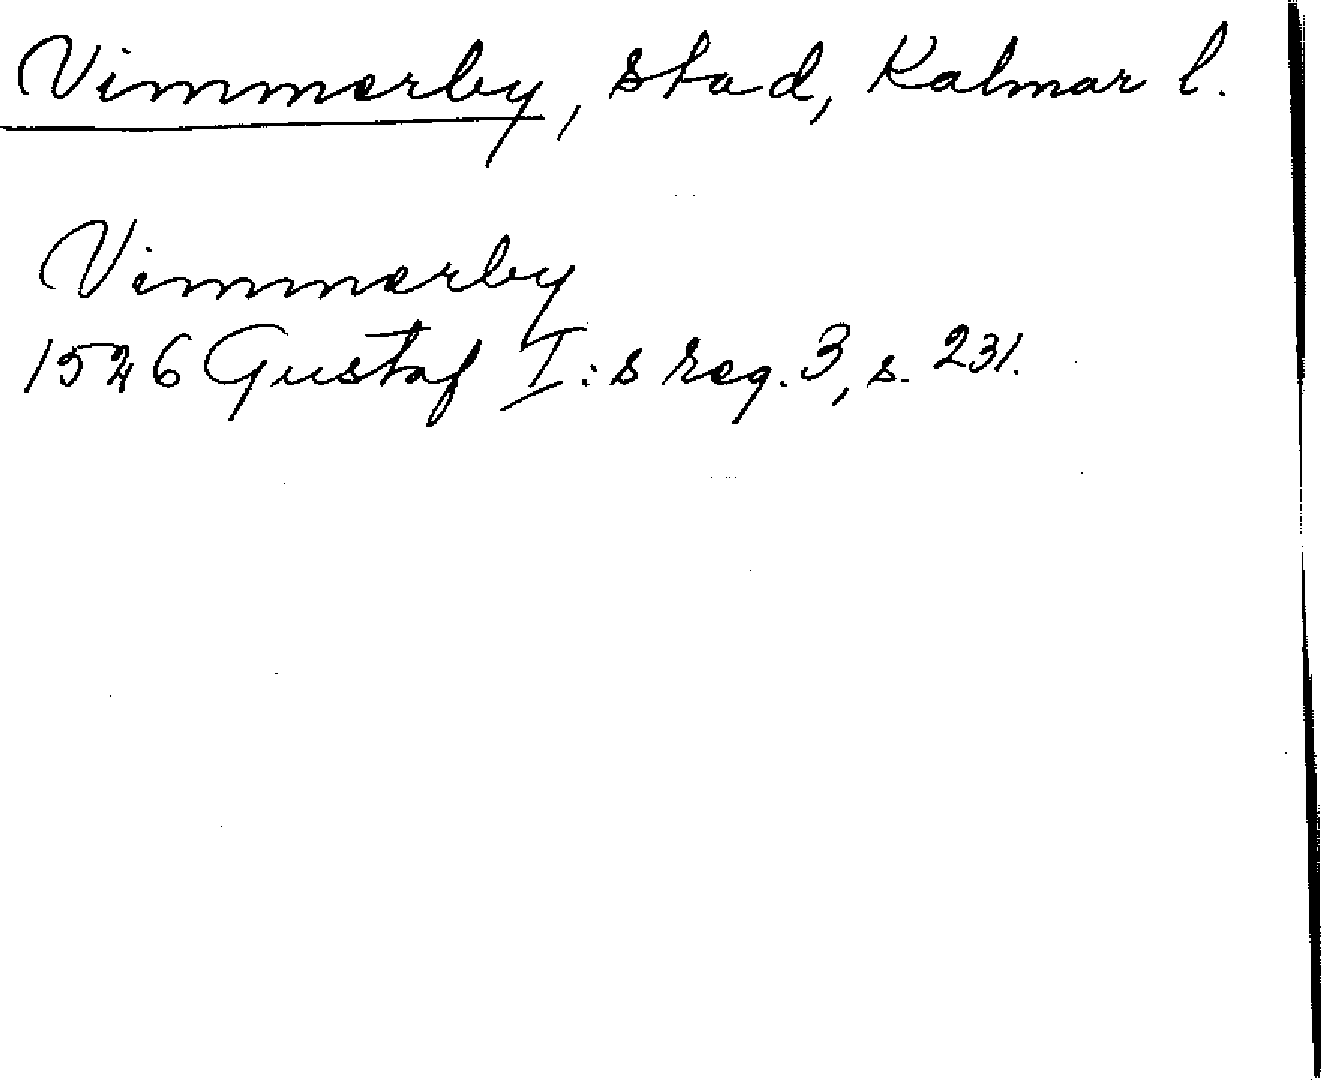 Vimmerby, stad, Kalmar l.
Vimmerby
1526 Gustaf I:s reg. 3, s. 231.